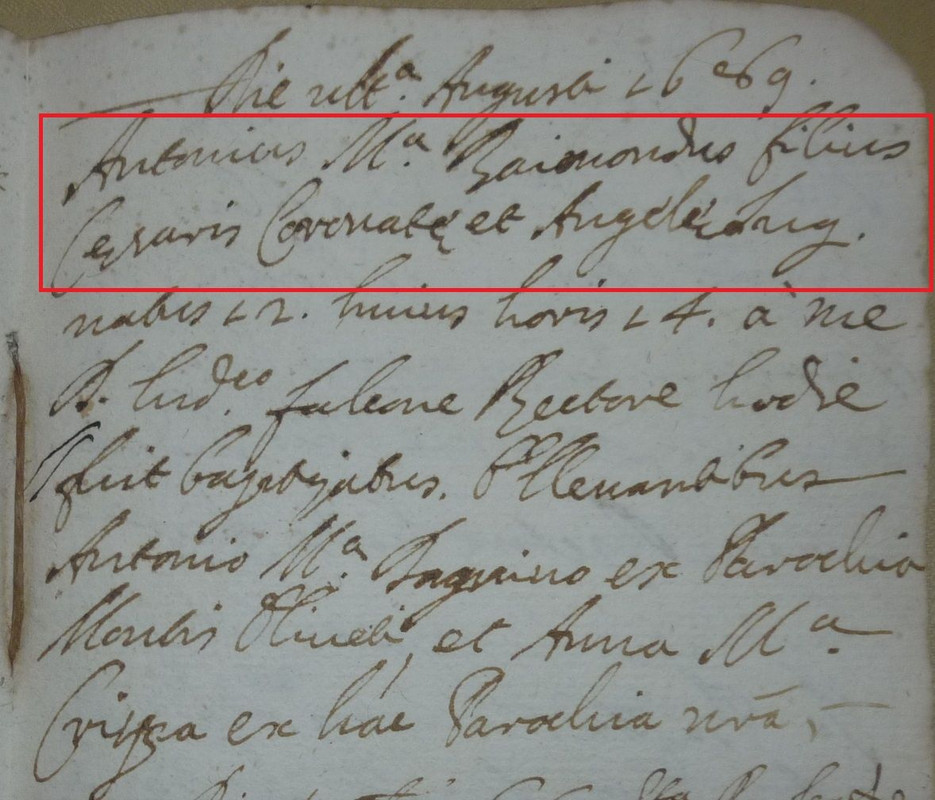 Die ult.a Augusti 1669.
Antonius M.a Raimondus filius
Cesaris Coronatę et Angelę Jug.
natus 12. huius horis 14. à me
P. Lud.co falcone Rectore hodie
fuit baptizatus. Ellevantibus
Antonio M.a ex Parochia
Montis Oliveti, et Anna M.a
Crispa ex hac Parochia nrā,